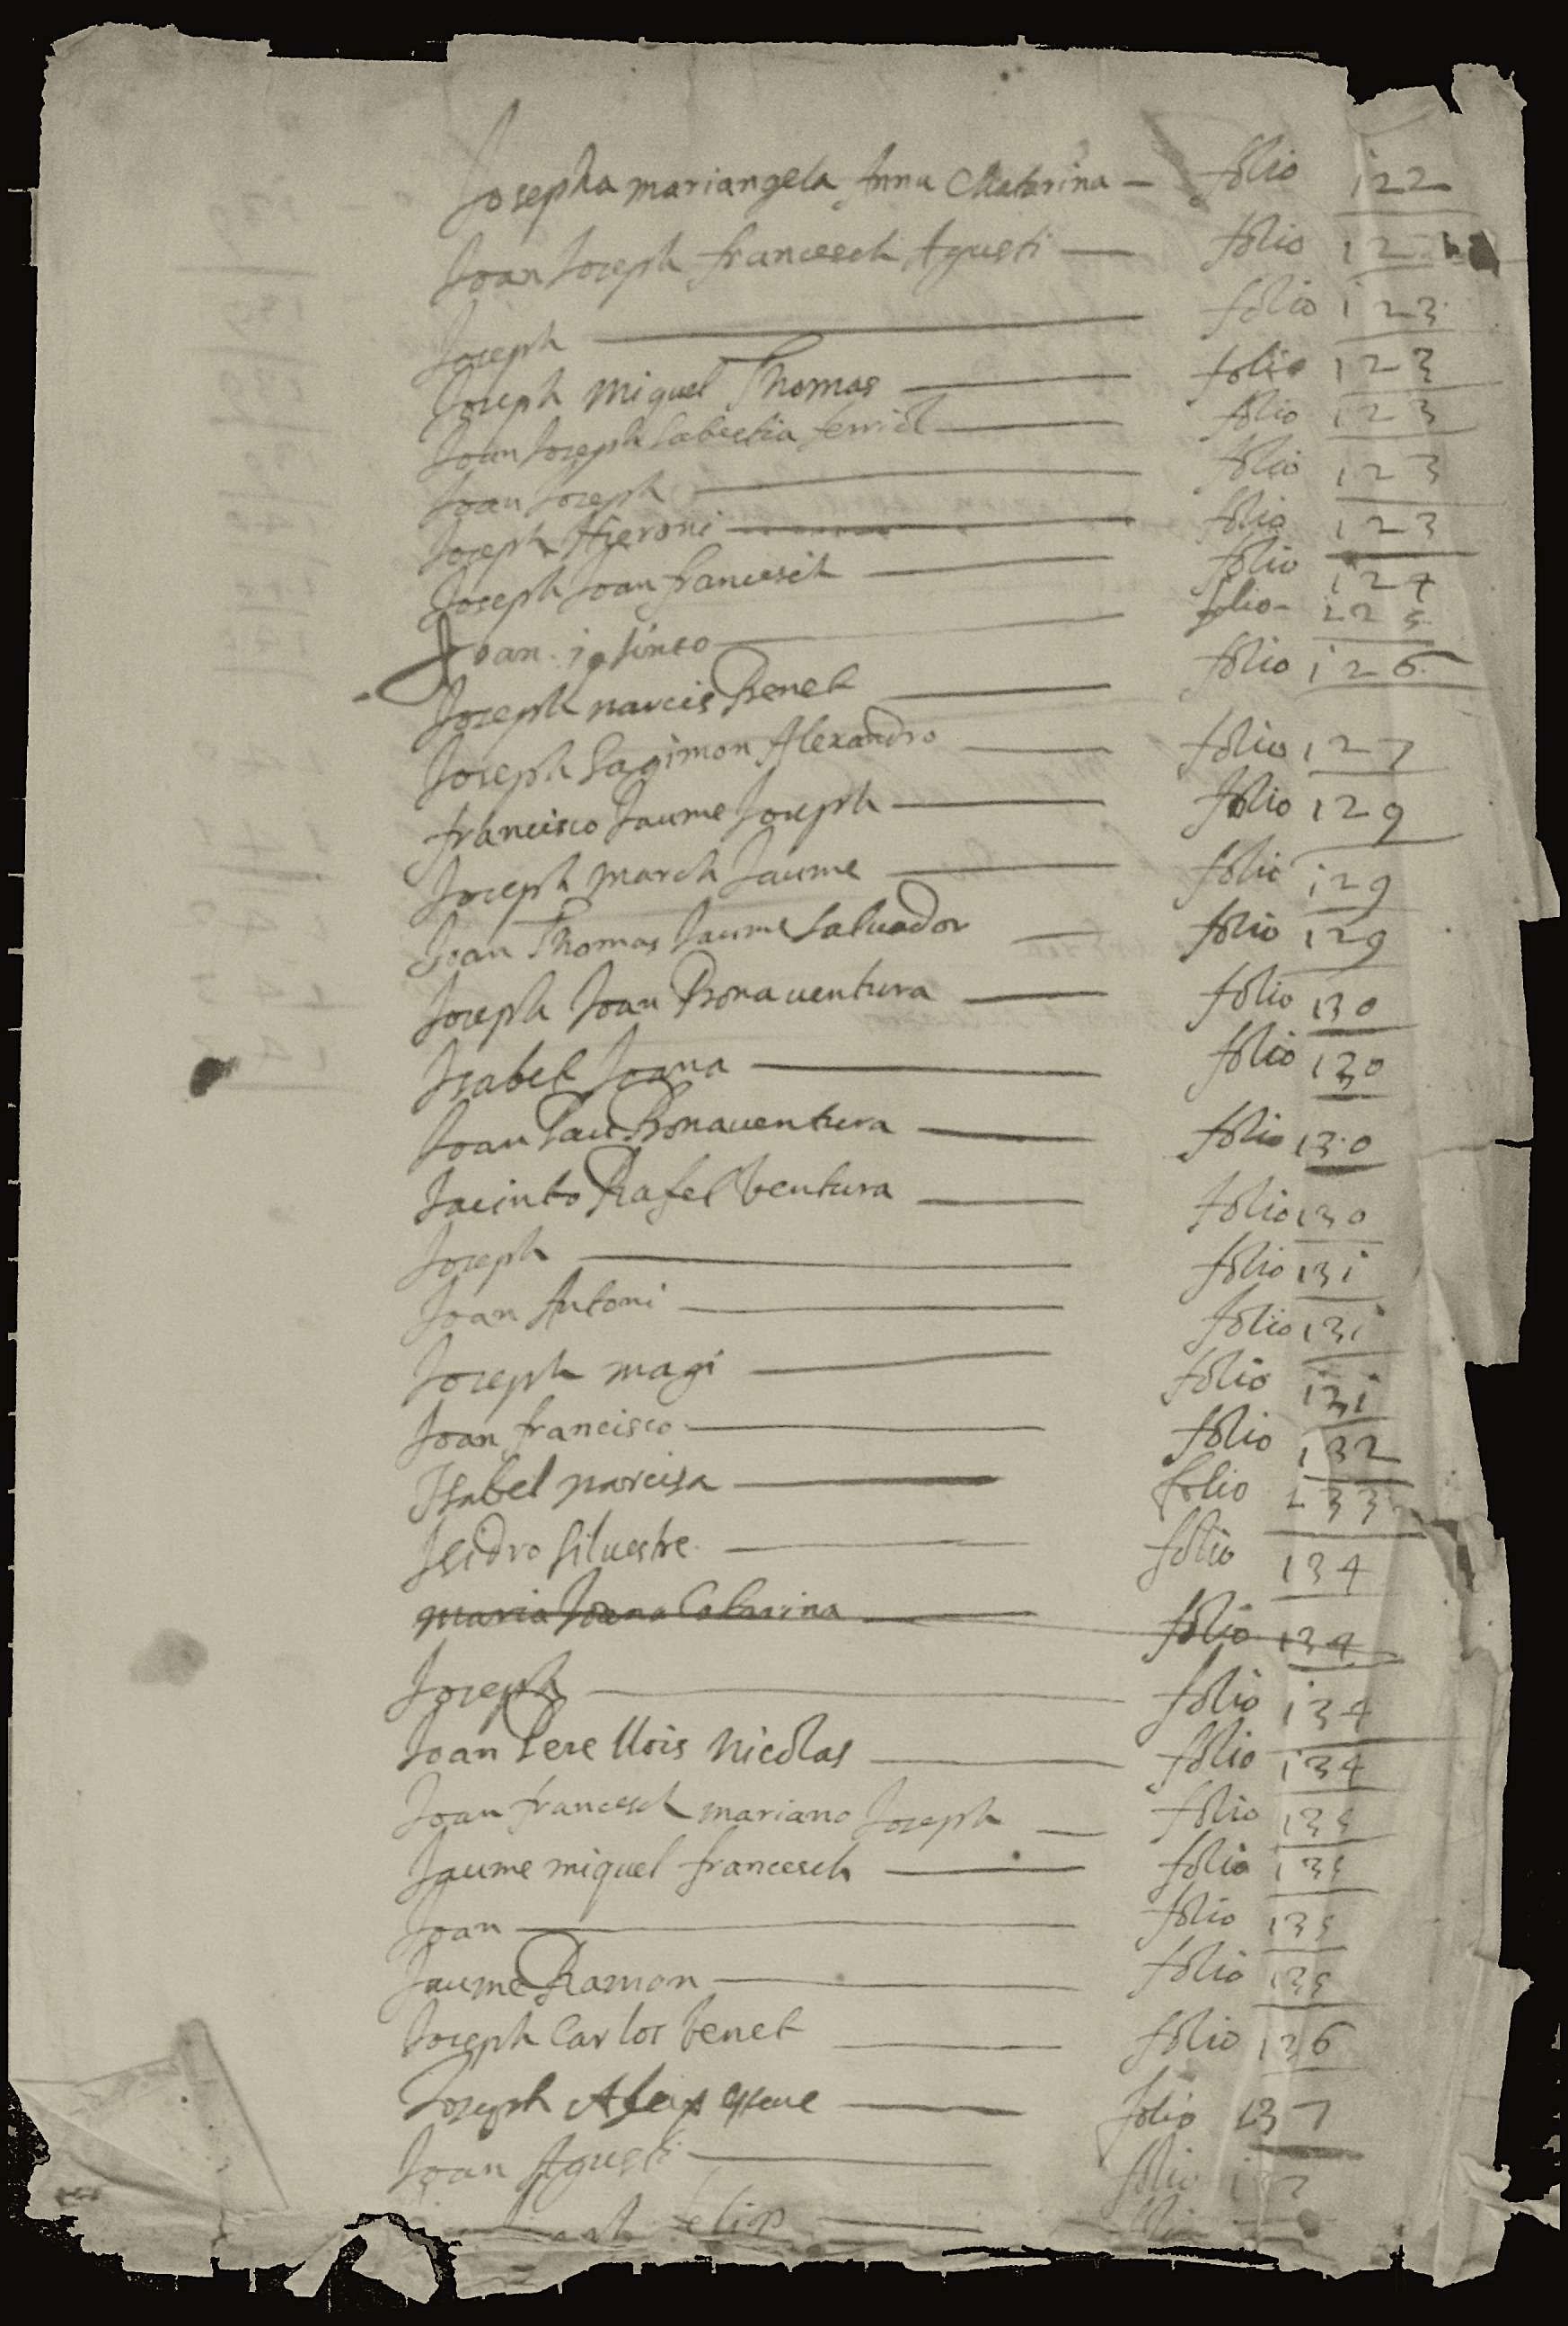 Josepha mariangela Anna Chatarina — folio 122
Joan Joseph francesch Agusti — folio 122
Joseph — folio 123
Joseph Miguel Thomas — folio 123
Joan Joseph Sabestia ferriol — folio 123
Joan Joseph — folio 123
Joseph Hieroni — folio 123
Joseph Joan francesch — folio 124
Joan — folio 125
Joseph narcis Benet — folio 126
Joseph Sagimon Alexandro — folio 127
francisco Jaume Joseph — folio 129
Joseph March Jaume — folio 129
Joan Thomas Jaume Saluador — folio 129
Joseph Joan Bonauentura — folio 130
Isabel Joana — folio 130
Joan Pau Bonauentura — folio 130
Jacinto Rafel Ventura — folio 130
Joseph — folio 131
Joan Antoni — folio 131
Joseph magi — folio 131
Joan francisco — folio 132
Isabel narcisa — folio 133
Isidro Siluestre — folio 134
Maria Joana Catarina — folio 134
Joseph — folio 134
Joan Pere llois Nicolas — folio 134
Joan francesch mariano Joseph — folio 135
Jaume miquel francesch — folio 135
Joan — folio 135
Jaume Ramon — folio 135
Joseph Carlos benet — folio 136
Joseph — folio 137
Joan Agusti — folio 137
felip —